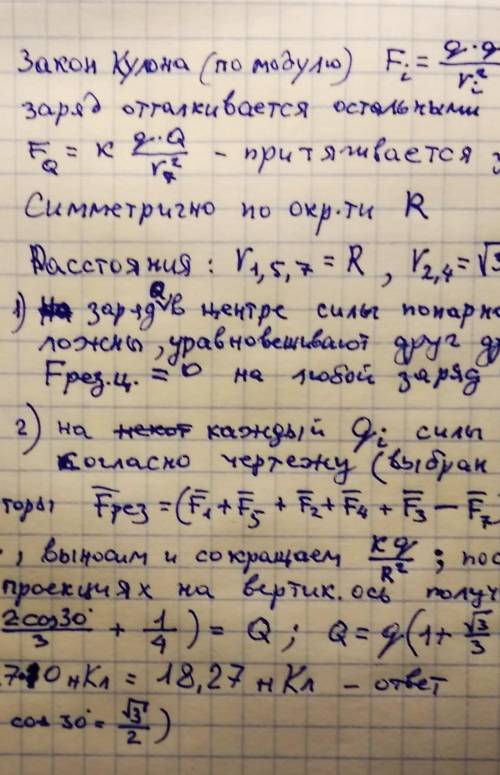 Закон Кулона (по модулю) F_i = q·q / r_i²
заряд отталкивается остальными
F_Q = к q·Q / r_7² - притягивается
Симметрично по окр-ти R
Расстояния: r_1,5,7 = R, r_2,4 = √3
1) заряд Q в центре силы попарно
ложны, уравновешивают друг др
Fрез.ц. = 0 на любой заряд
2) на каждый q_i силы
согласно чертежу (выбран
торы F̅рез = (F̅_1 + F̅_5 + F̅_2 + F̅_4 + F̅_3 − F̅_7
, выносим и сокращаем кq / R² ; пос
проекциях на вертик. ось получ
2cos30° / 3 + 1/4) = Q; Q = q(1 + √3/3
нКл = 18,27 нКл - ответ
cos 30° = √3/2)